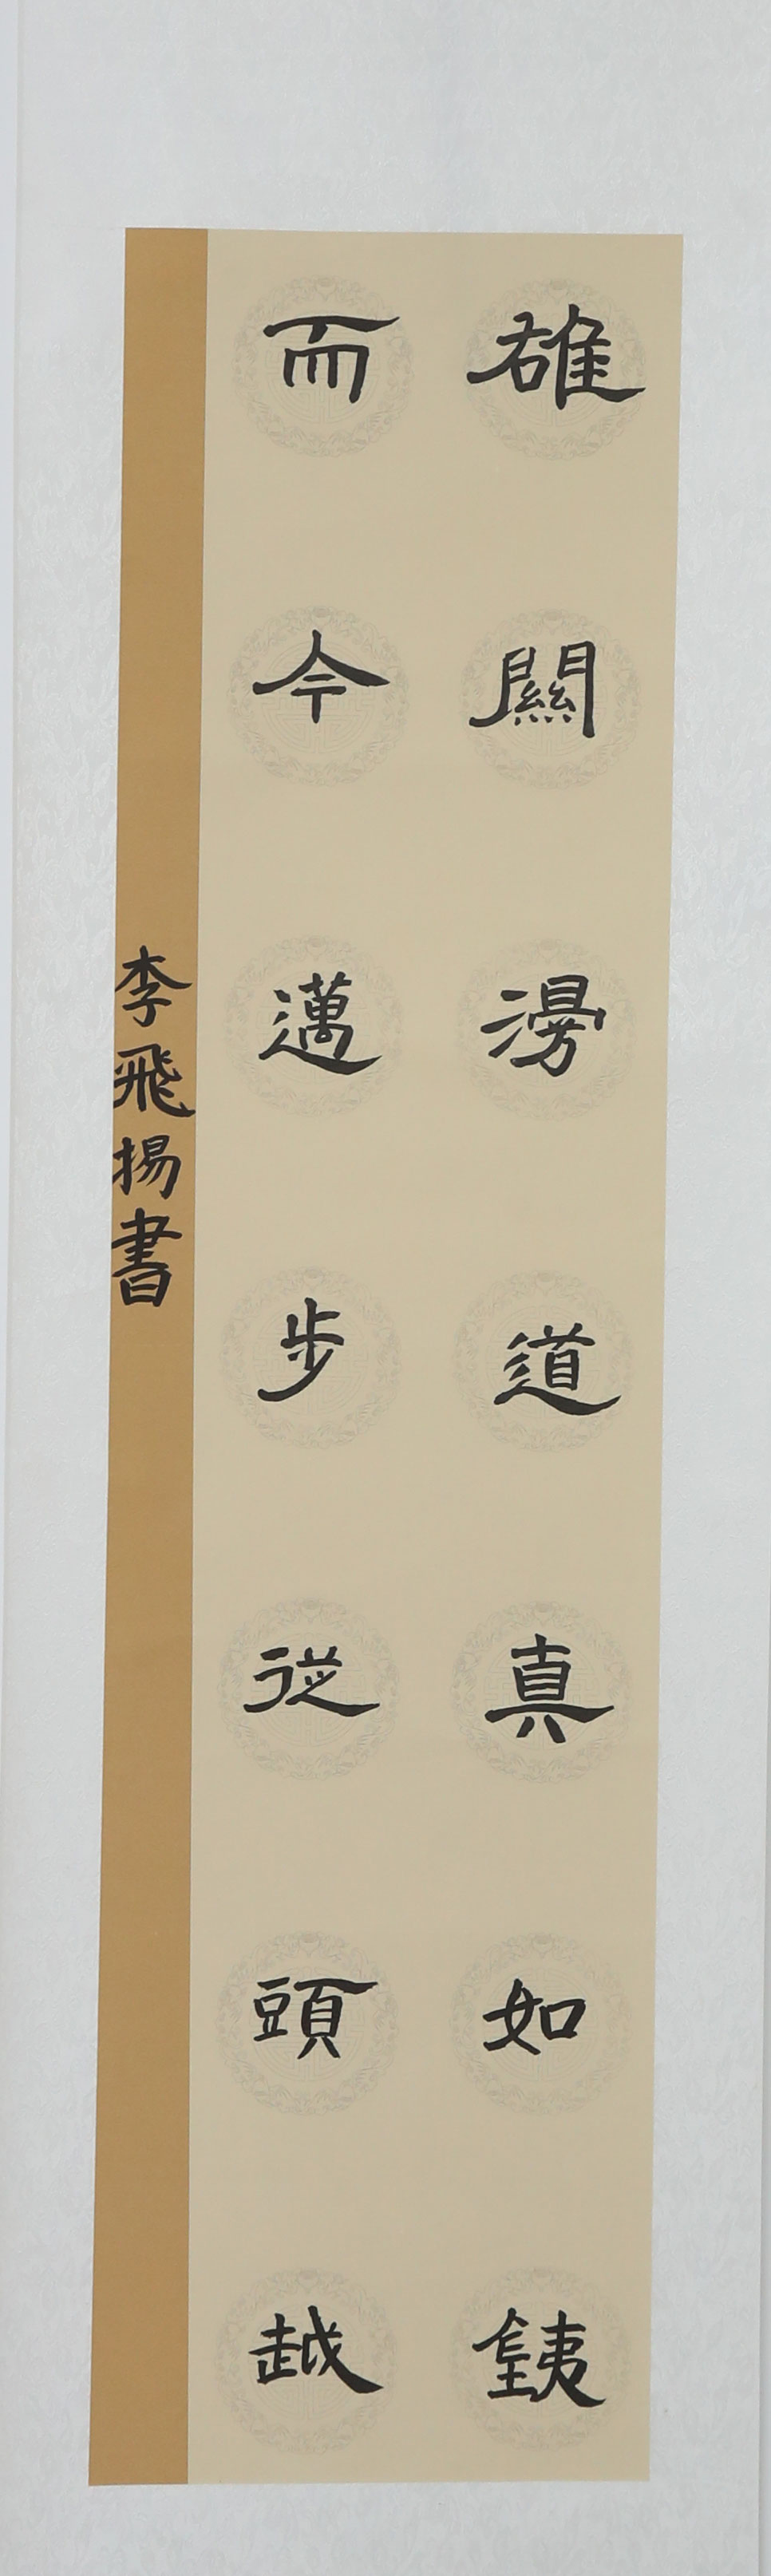 雄關漫道真如銕
而今邁步從頭越
李飛揚書